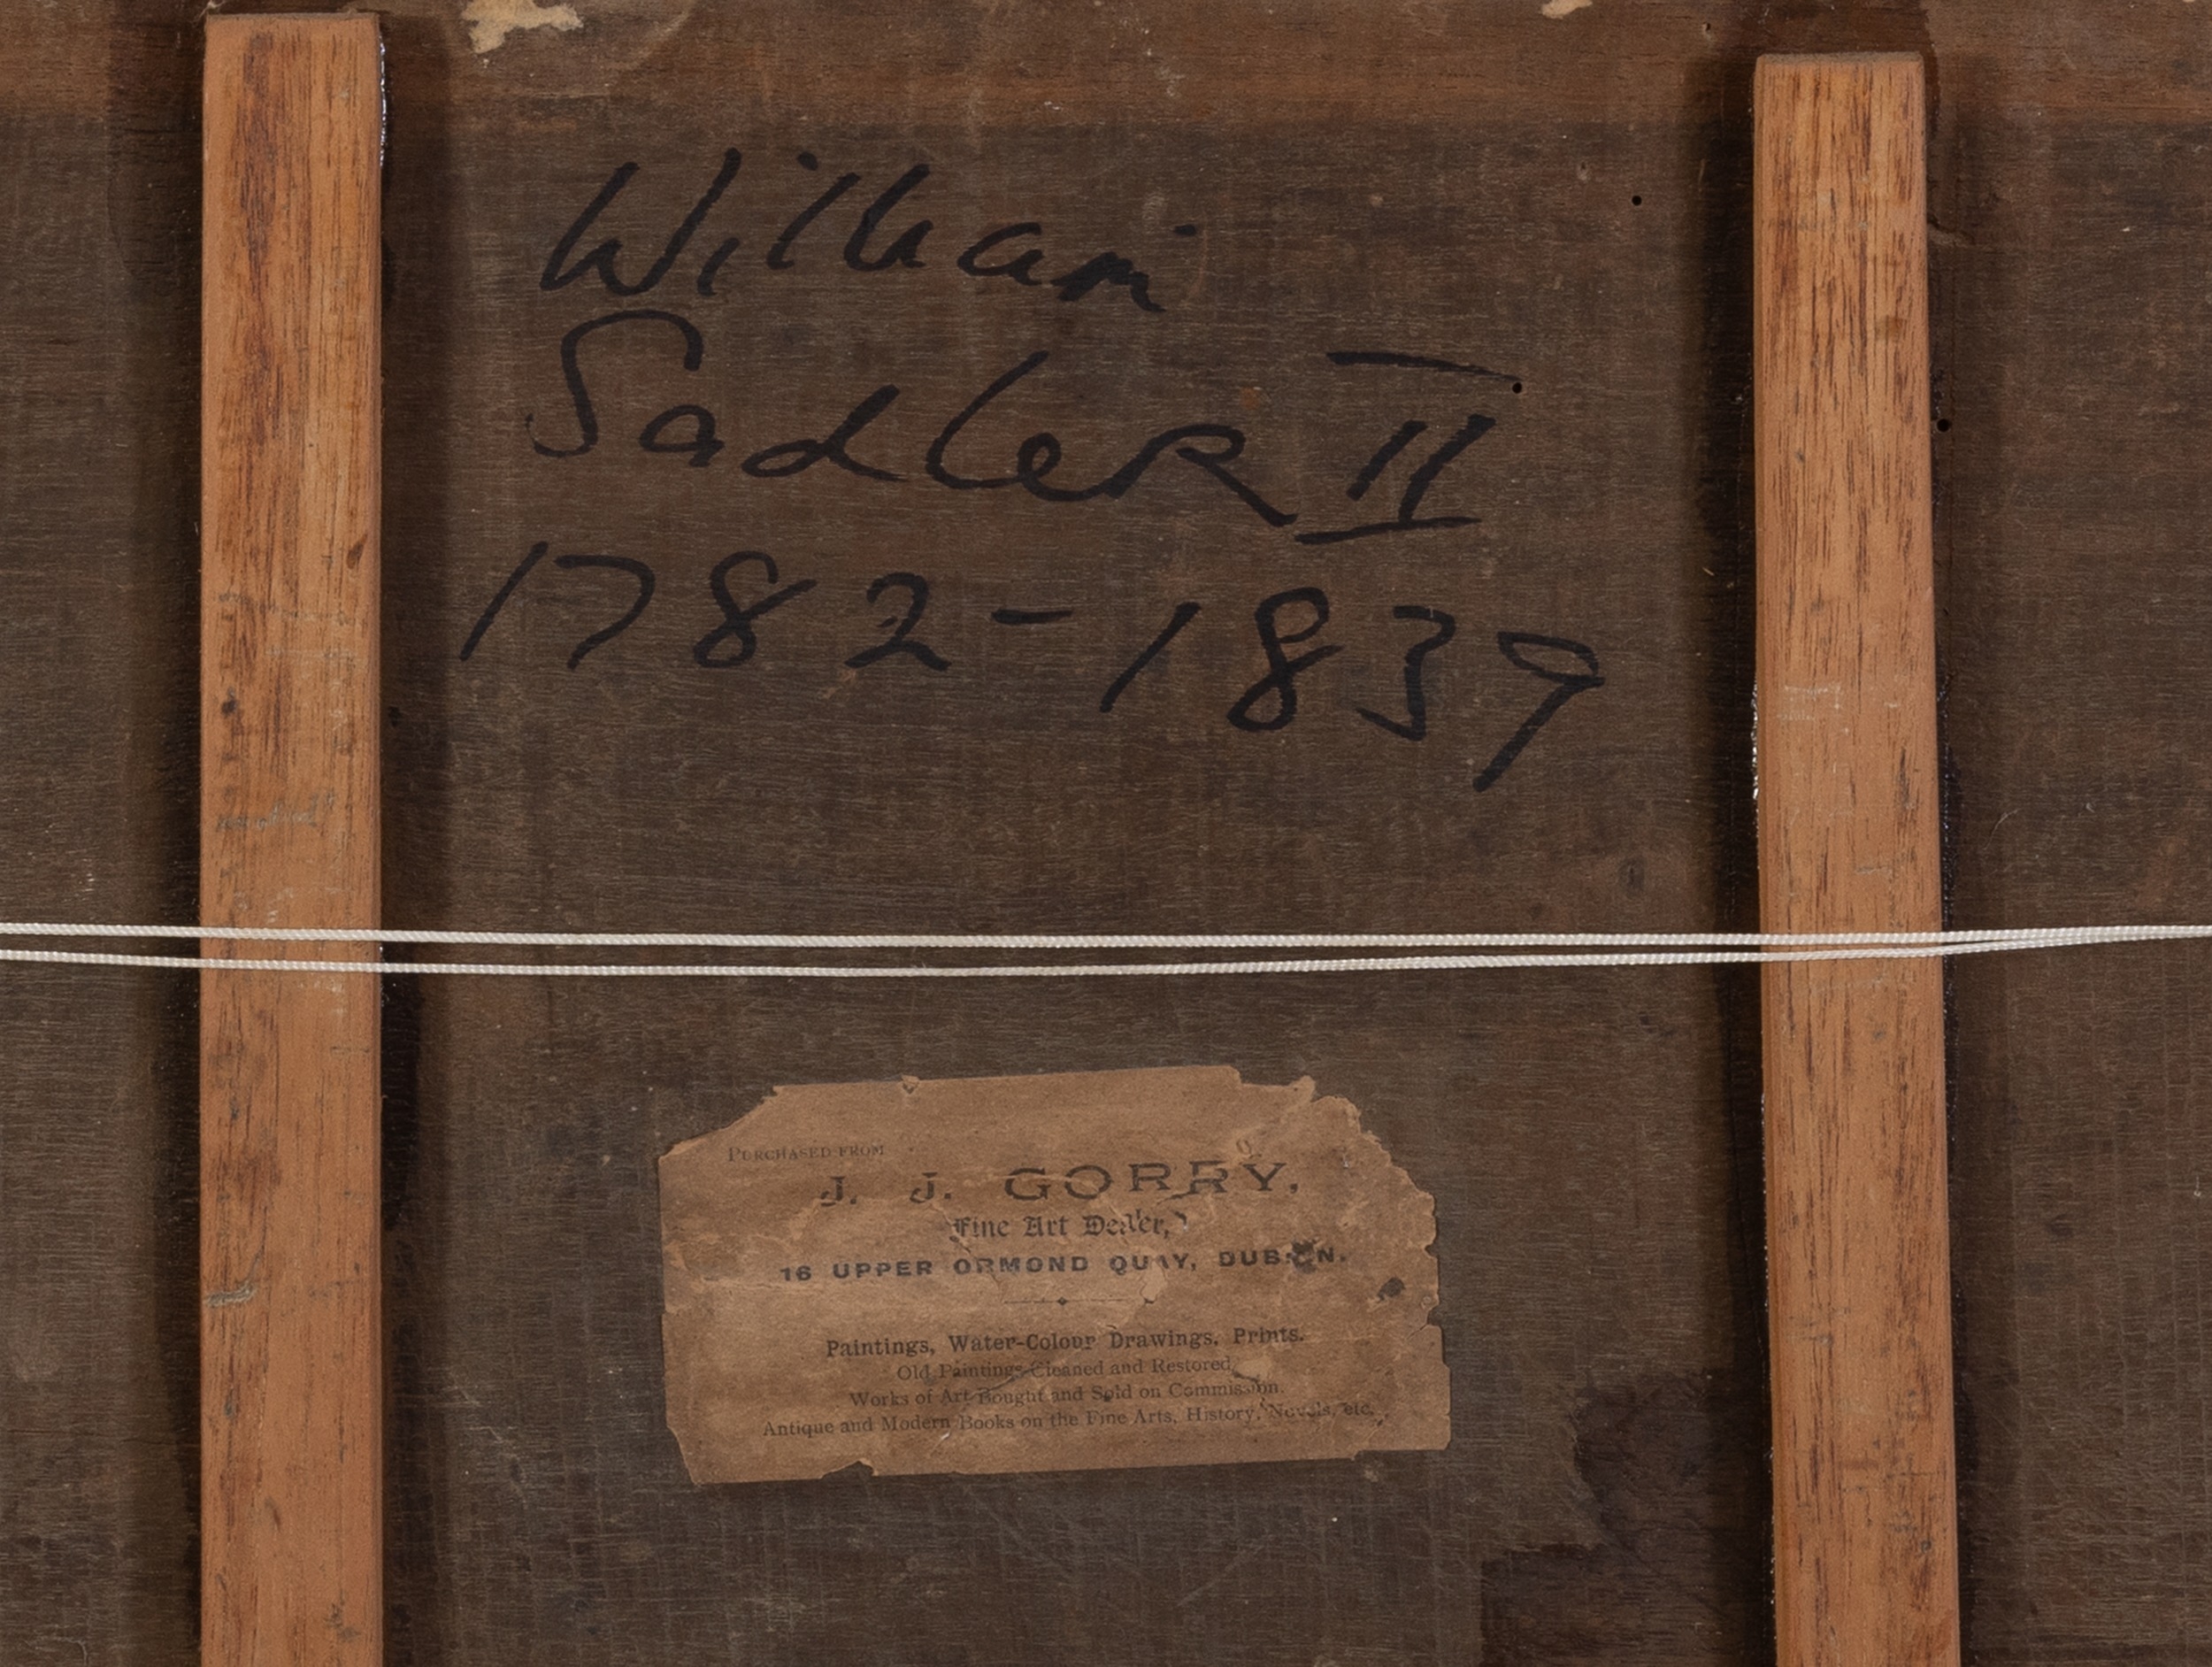 William
Sadler II
1782-1839
PURCHASED FROM
J. J. GORRY,
Fine Art Dealer,
16 UPPER ORMOND QUAY, DUBLIN.
Paintings, Water-Colour Drawings, Prints.
Old Paintings Cleaned and Restored.
Works of Art Bought and Sold on Commission.
Antique and Modern Books on the Fine Arts, History, Novels, etc.